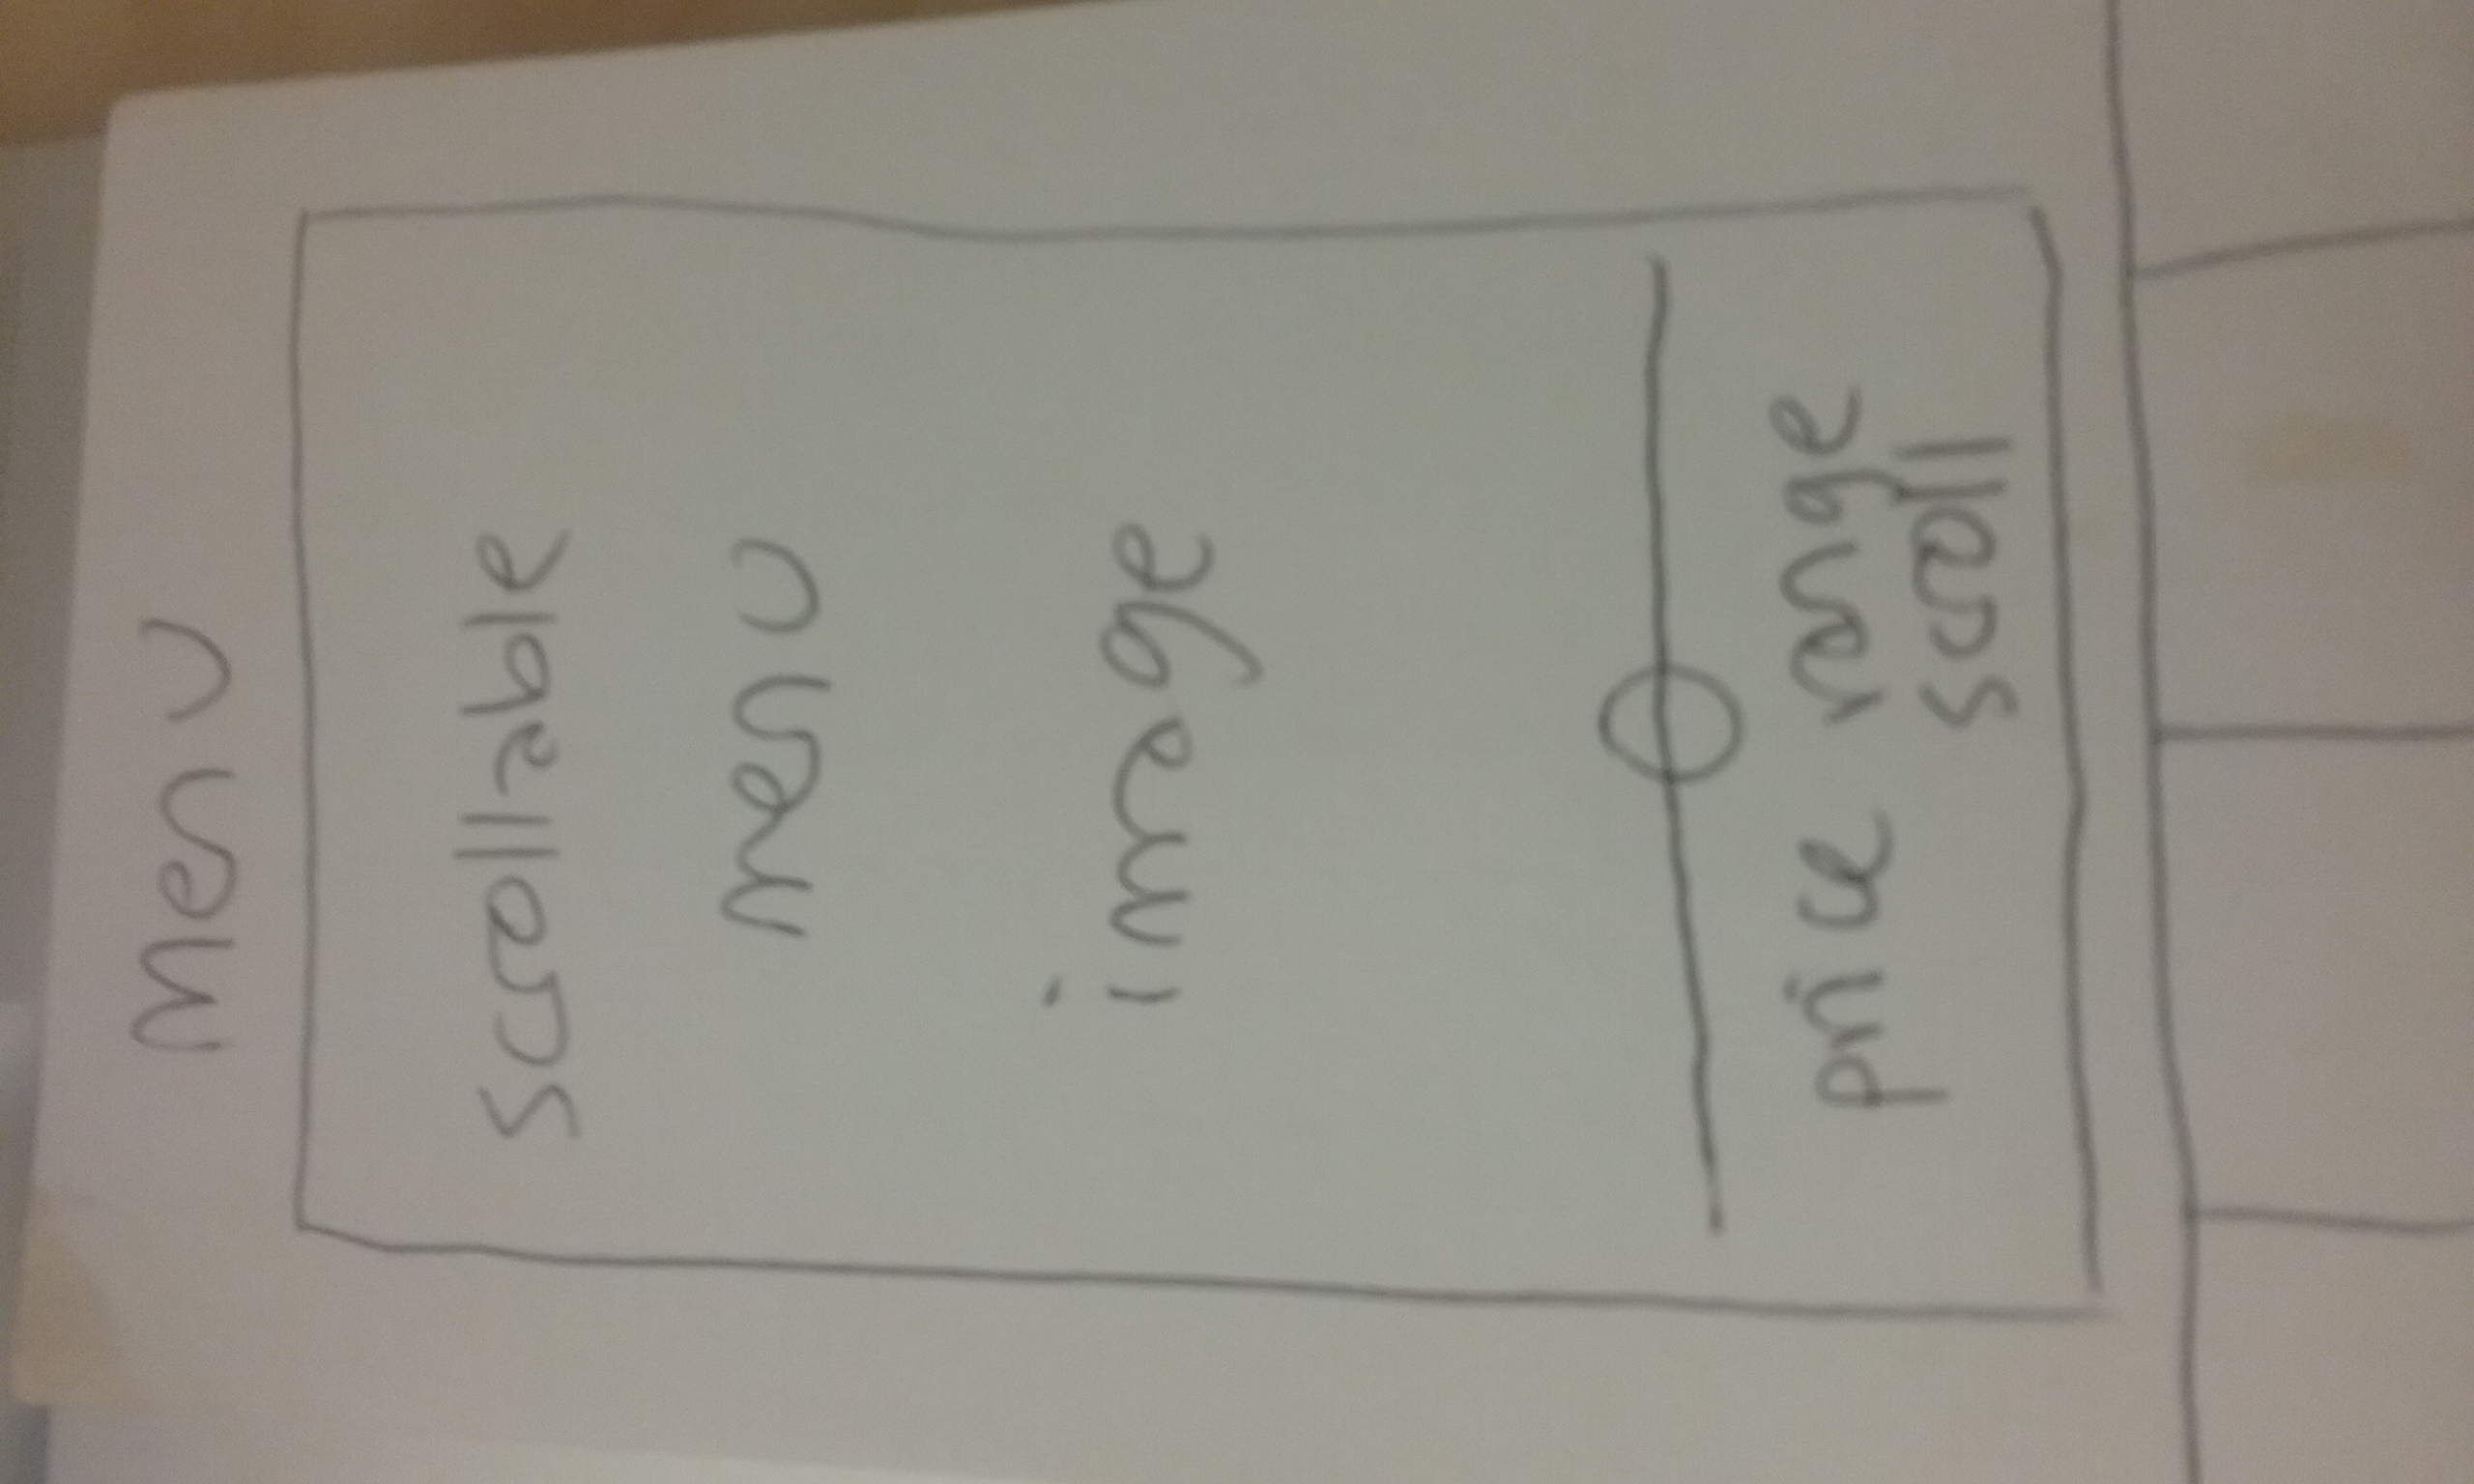 Menu
scrollable
menu
image
price range
scroll